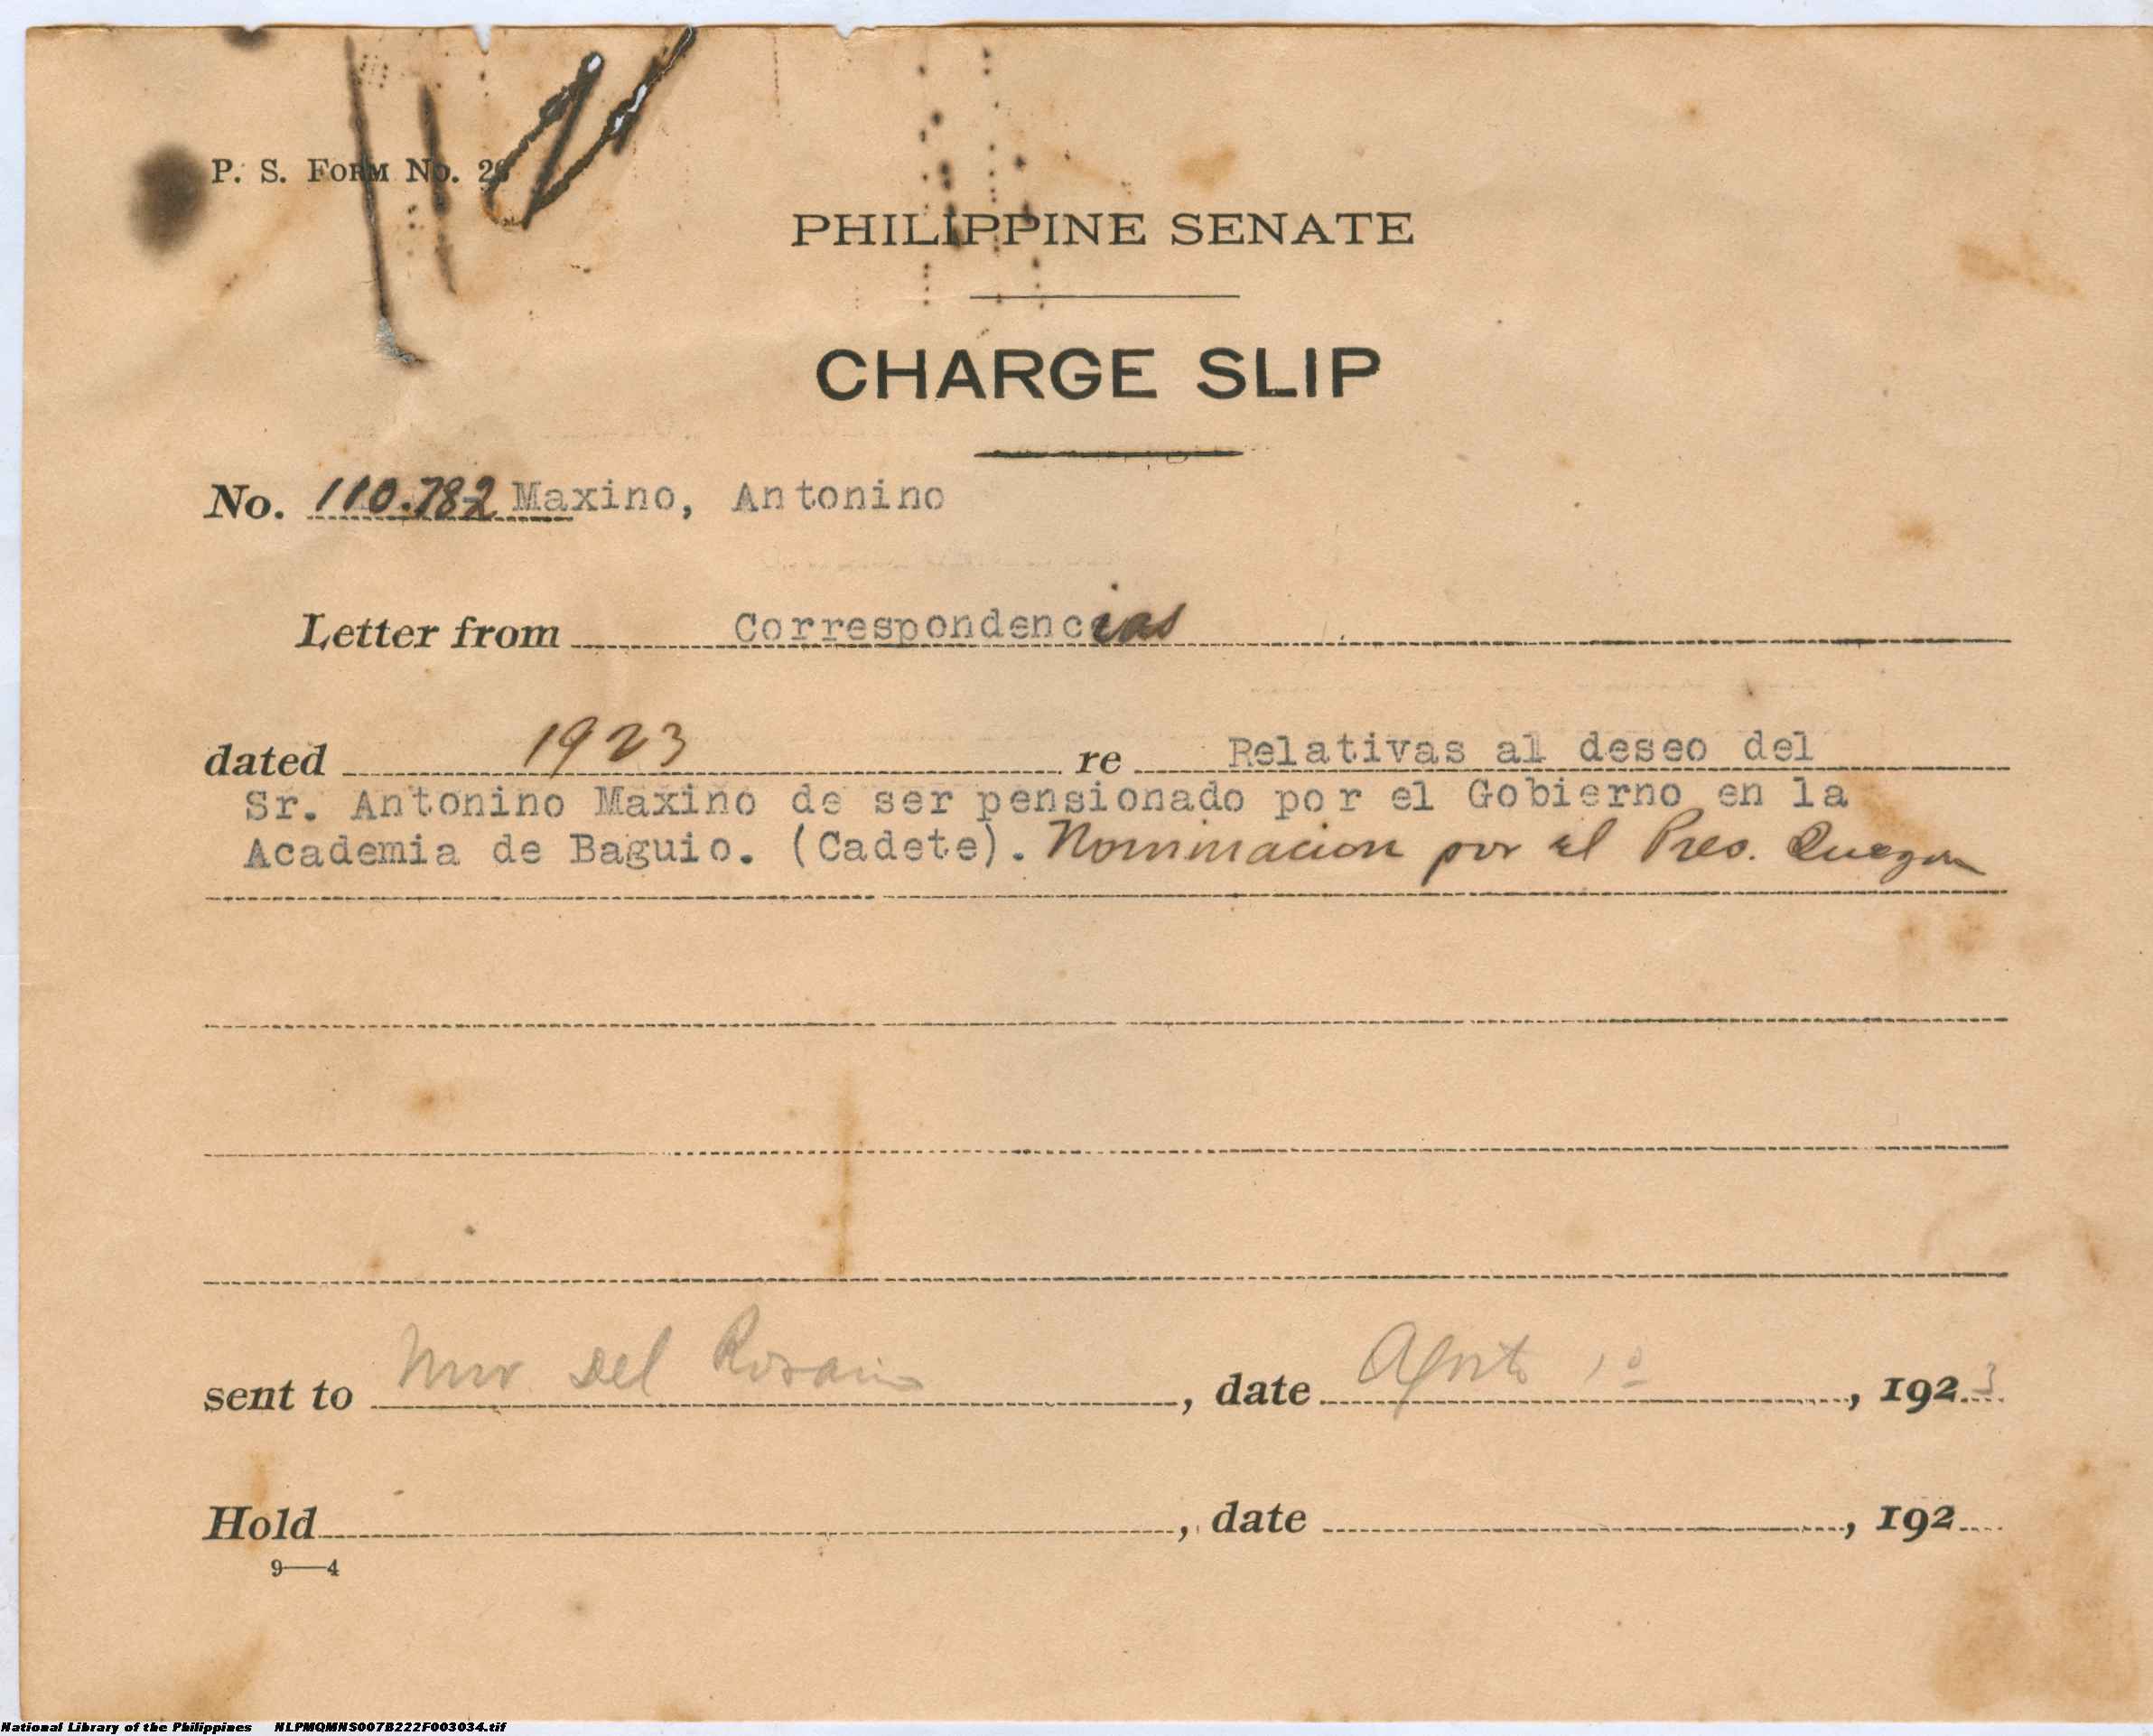 P. S. Form No. 26
PHILIPPINE SENATE
CHARGE SLIP
No. 110.782 Maxino, Antonino
Letter from Correspondencias
dated 1923 re Relativas al deseo del
Sr. Antonino Maxino de ser pensionado por el Gobierno en la
Academia de Baguio. (Cadete). Nominacion por el Pres. Quezon
sent to del Rosario, date Agosto 1º, 1923
Hold, date, 192
9—4
National Library of the Philippines NLPMQMNS007B222F003034.tif